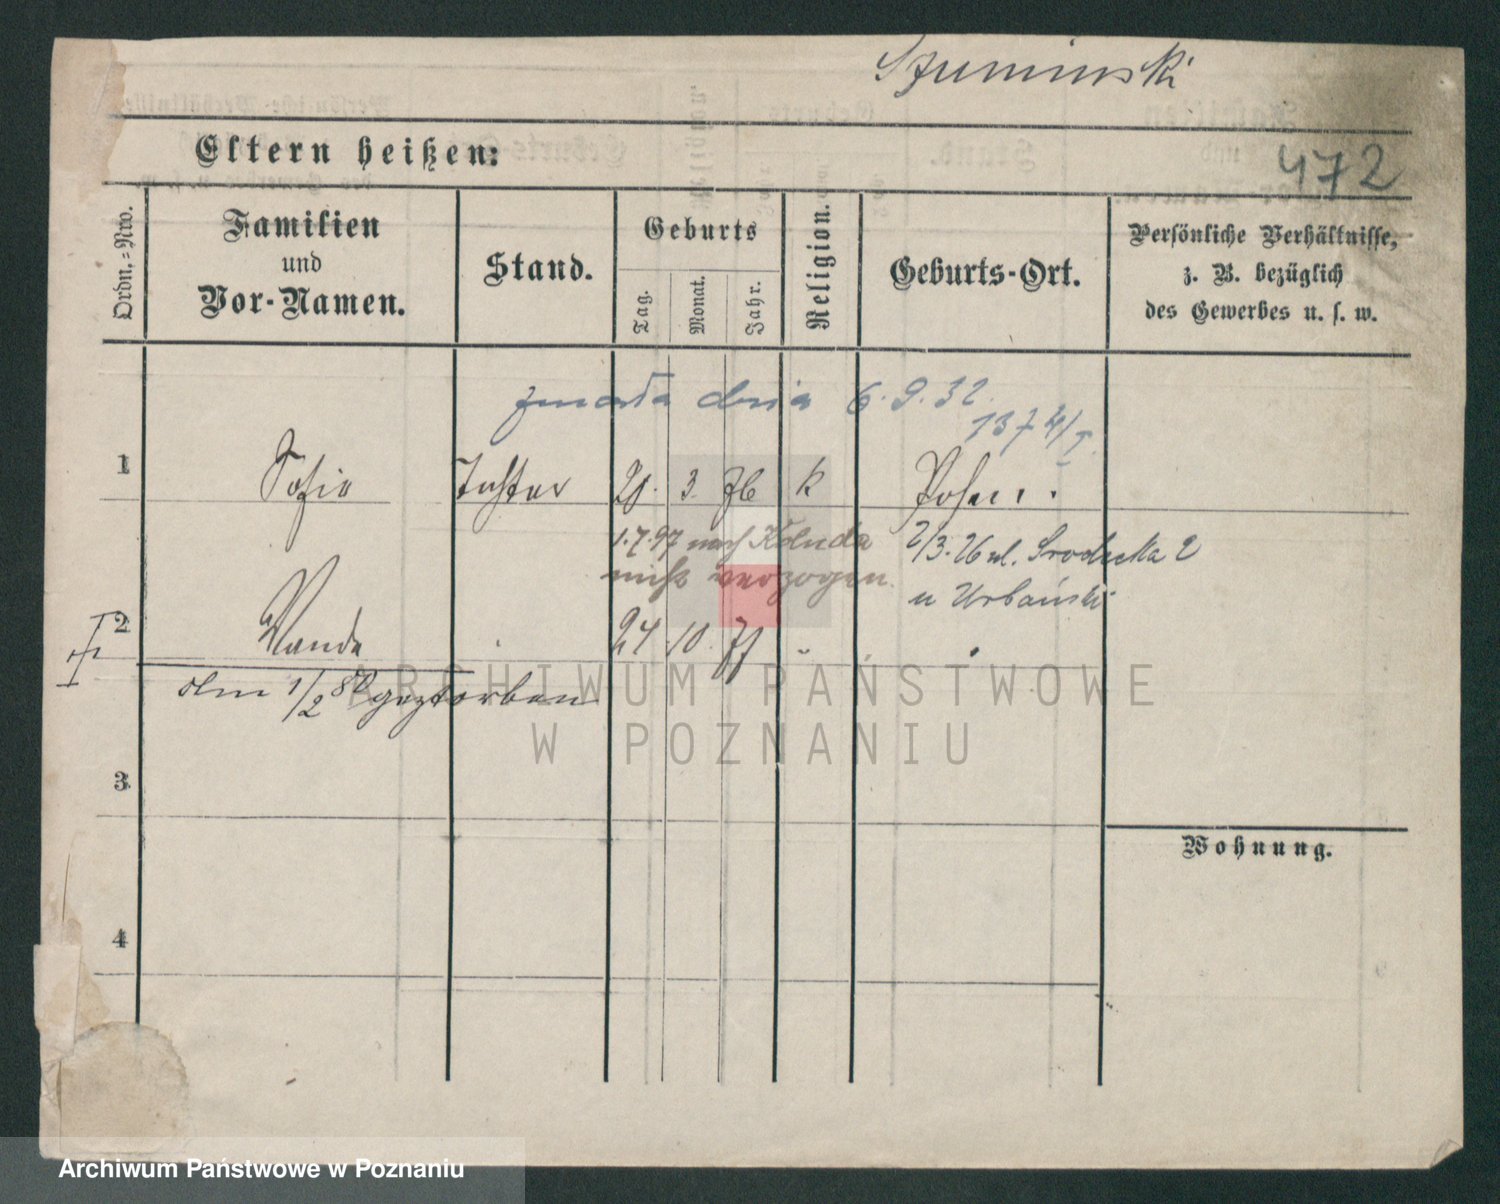 Szuminski
Eltern heißen:
472
Ordn.=Nro.
Familien
und
Vor-Namen.
Stand.
Geburts
Tag.
Monat.
Jahr.
Religion.
Geburts-Ort.
Persönliche Verhältnisse,
z. B. bezüglich
des Gewerbes u. s. w.
zmarła dnia 6.9.32.
1374/I.
1 Sofie Tochter 20. 3. 76 k Posen
1.7.97 nach Koluda
verzogen.
2/3.26 ul. Srodecka 2
u Urbański
2 Wanda 24 10. 77
1/2 80 geztorben
3
4
Wohnung.
ARCHIWUM PAŃSTWOWE
W POZNANIU
Archiwum Państwowe w Poznaniu